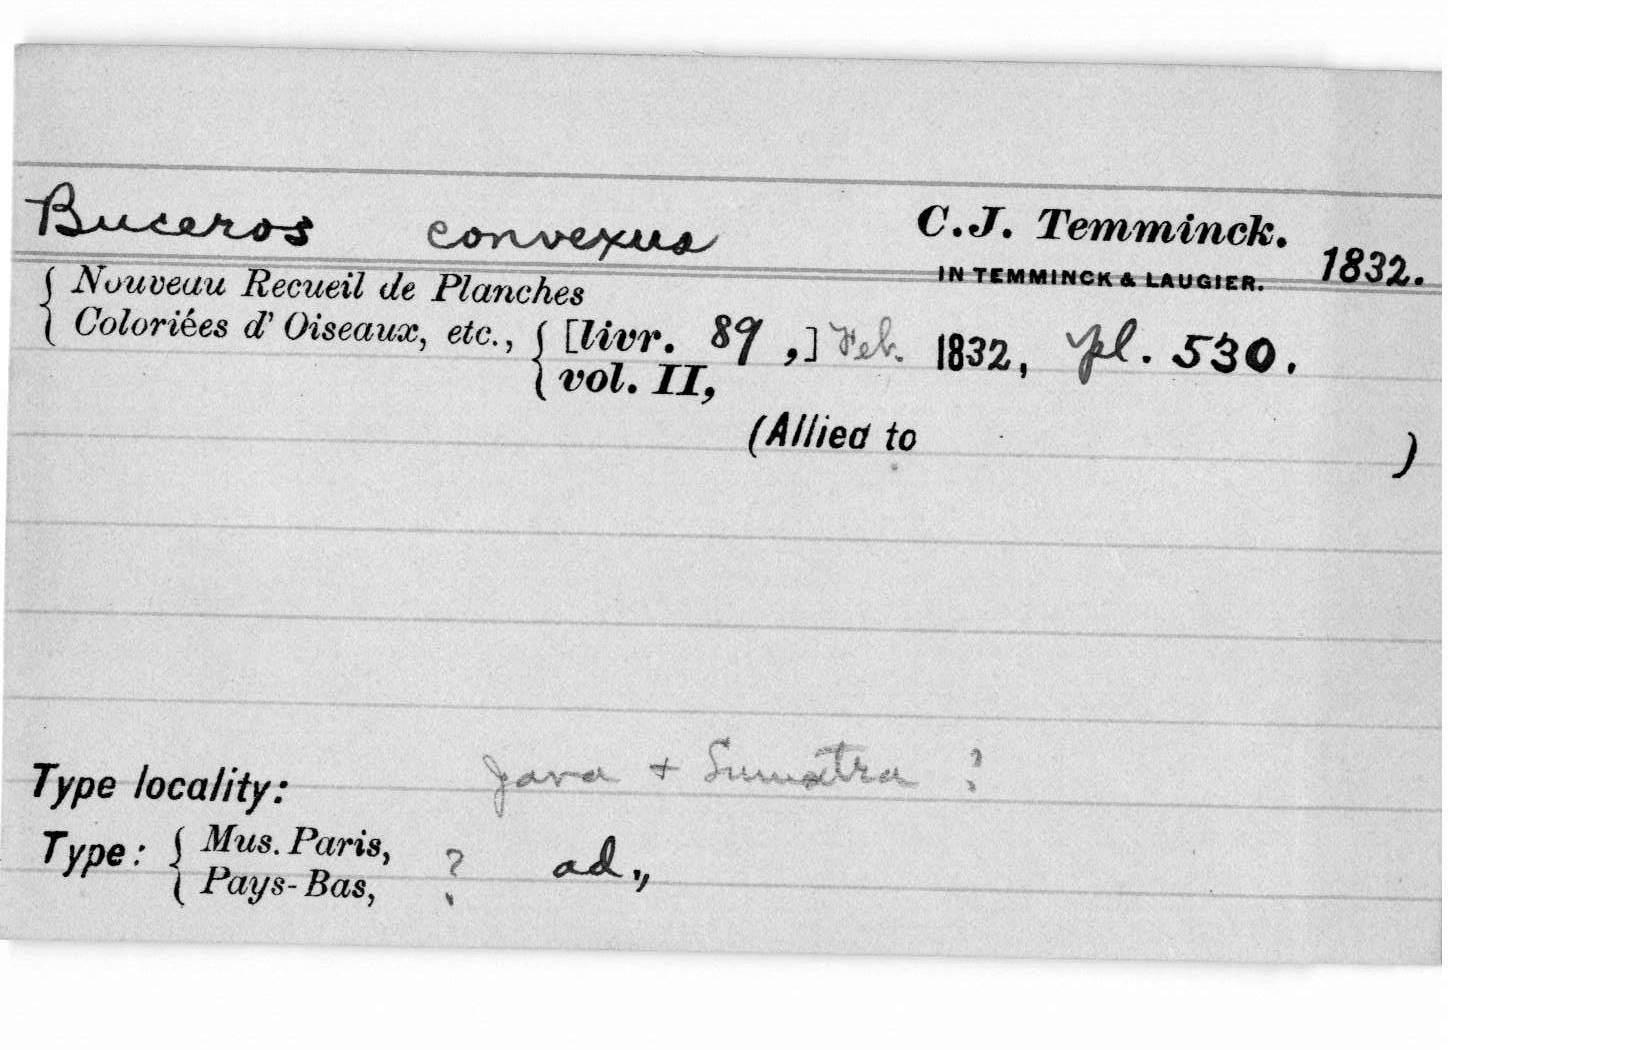 Buceros convexus C.J. Temminck.
IN TEMMINCK & LAUGIER. 1832.
{ Nouveau Recueil de Planches
{ Coloriées d' Oiseaux, etc., { [livr. 89 ,] Feb. 1832, pl. 530.
{ vol. II,
(Allied to )
Type locality: Java + Sumatra ?
Type: { Mus. Paris, ? ad.,,
{ Pays-Bas,